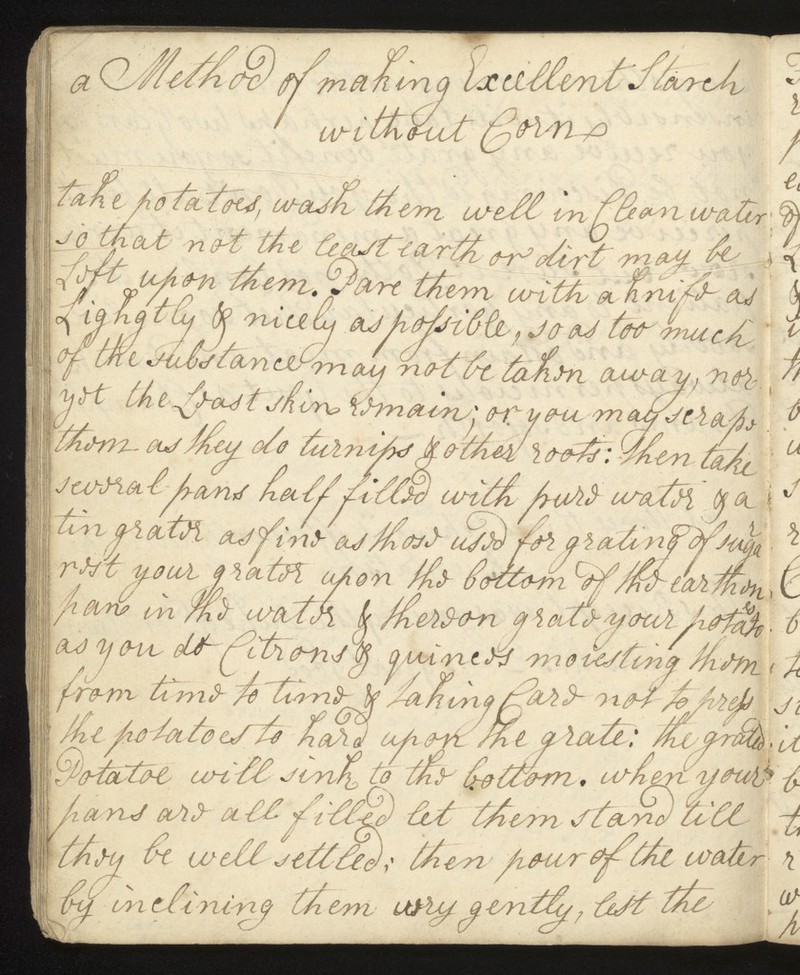 a Method of making Excellent Starch
without Corn
take potatoes, wash them well in Clean water
so that not the least earth or dirt may be
Left upon them. Pare them with a knife as
Lighgtly & nicely as possible, so as too much
of the substance may not be taken away, nor
yet the Least skin remain; or you may scrape
them as they do turnips & other roots: Then take
several pans half filled with pure water & a
tin grater as fine as those used for grating of sugar
rest your grater upon the bottom of the earthen
pans in the water & thereon grate your potatoes
as you do Citrons & quinces moiesting them
from time to time & taking Care not to press
the potatoes to hard upon the grate: the grated
Potatoe will sink to the bottom. when your
pans are all filled let them stand till
they be well settled; then pour of the water
by inclining them very gently, lest the